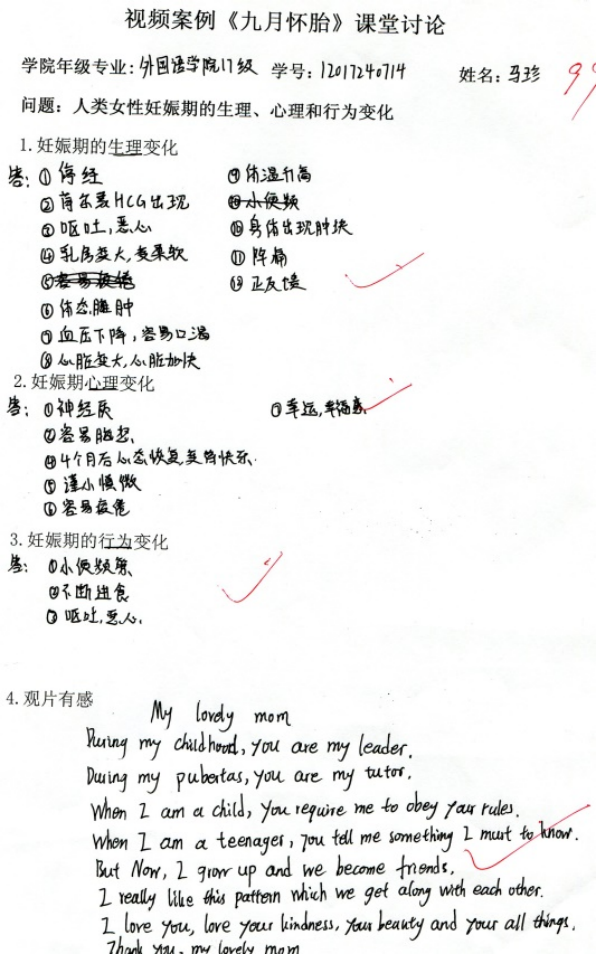 视频案例《九月怀胎》课堂讨论
学院年级专业：外国语学院17级 学号：12017240714 姓名：马珍 99
问题：人类女性妊娠期的生理、心理和行为变化
1.妊娠期的生理变化
答：① 停经 ⑨ 体温升高
② 荷尔蒙HCG出现 ⑩ 小便频
③ 呕吐，恶心 ⑩ 身体出现肿块
④ 乳房变大，变柔软 ⑪ 阵痛
⑤ 容易疲倦 ⑫ 正反馈
⑥ 体态臃肿
⑦ 血压下降，容易口渴
⑧ 心脏变大，心脏加快
2.妊娠期心理变化
答：①神经质 ⑦ 幸运，幸福感
②容易胡想
④4个月后心态恢复变得快乐.
⑤ 谨小慎微
⑥ 容易疲倦
3.妊娠期的行为变化
答：①小便频繁
②不断进食
③ 呕吐，恶心.
4.观片有感
My lovely mom
During my childhood, you are my leader.
During my pubertas, you are my tutor.
When I am a child, you require me to obey your rules.
When I am a teenager, you tell me something I must to know.
But Now, I grow up and we become friends.
I really like this pattern which we get along with each other.
I love you, love your kindness, your beauty and your all things.
Thank you, my lovely mom